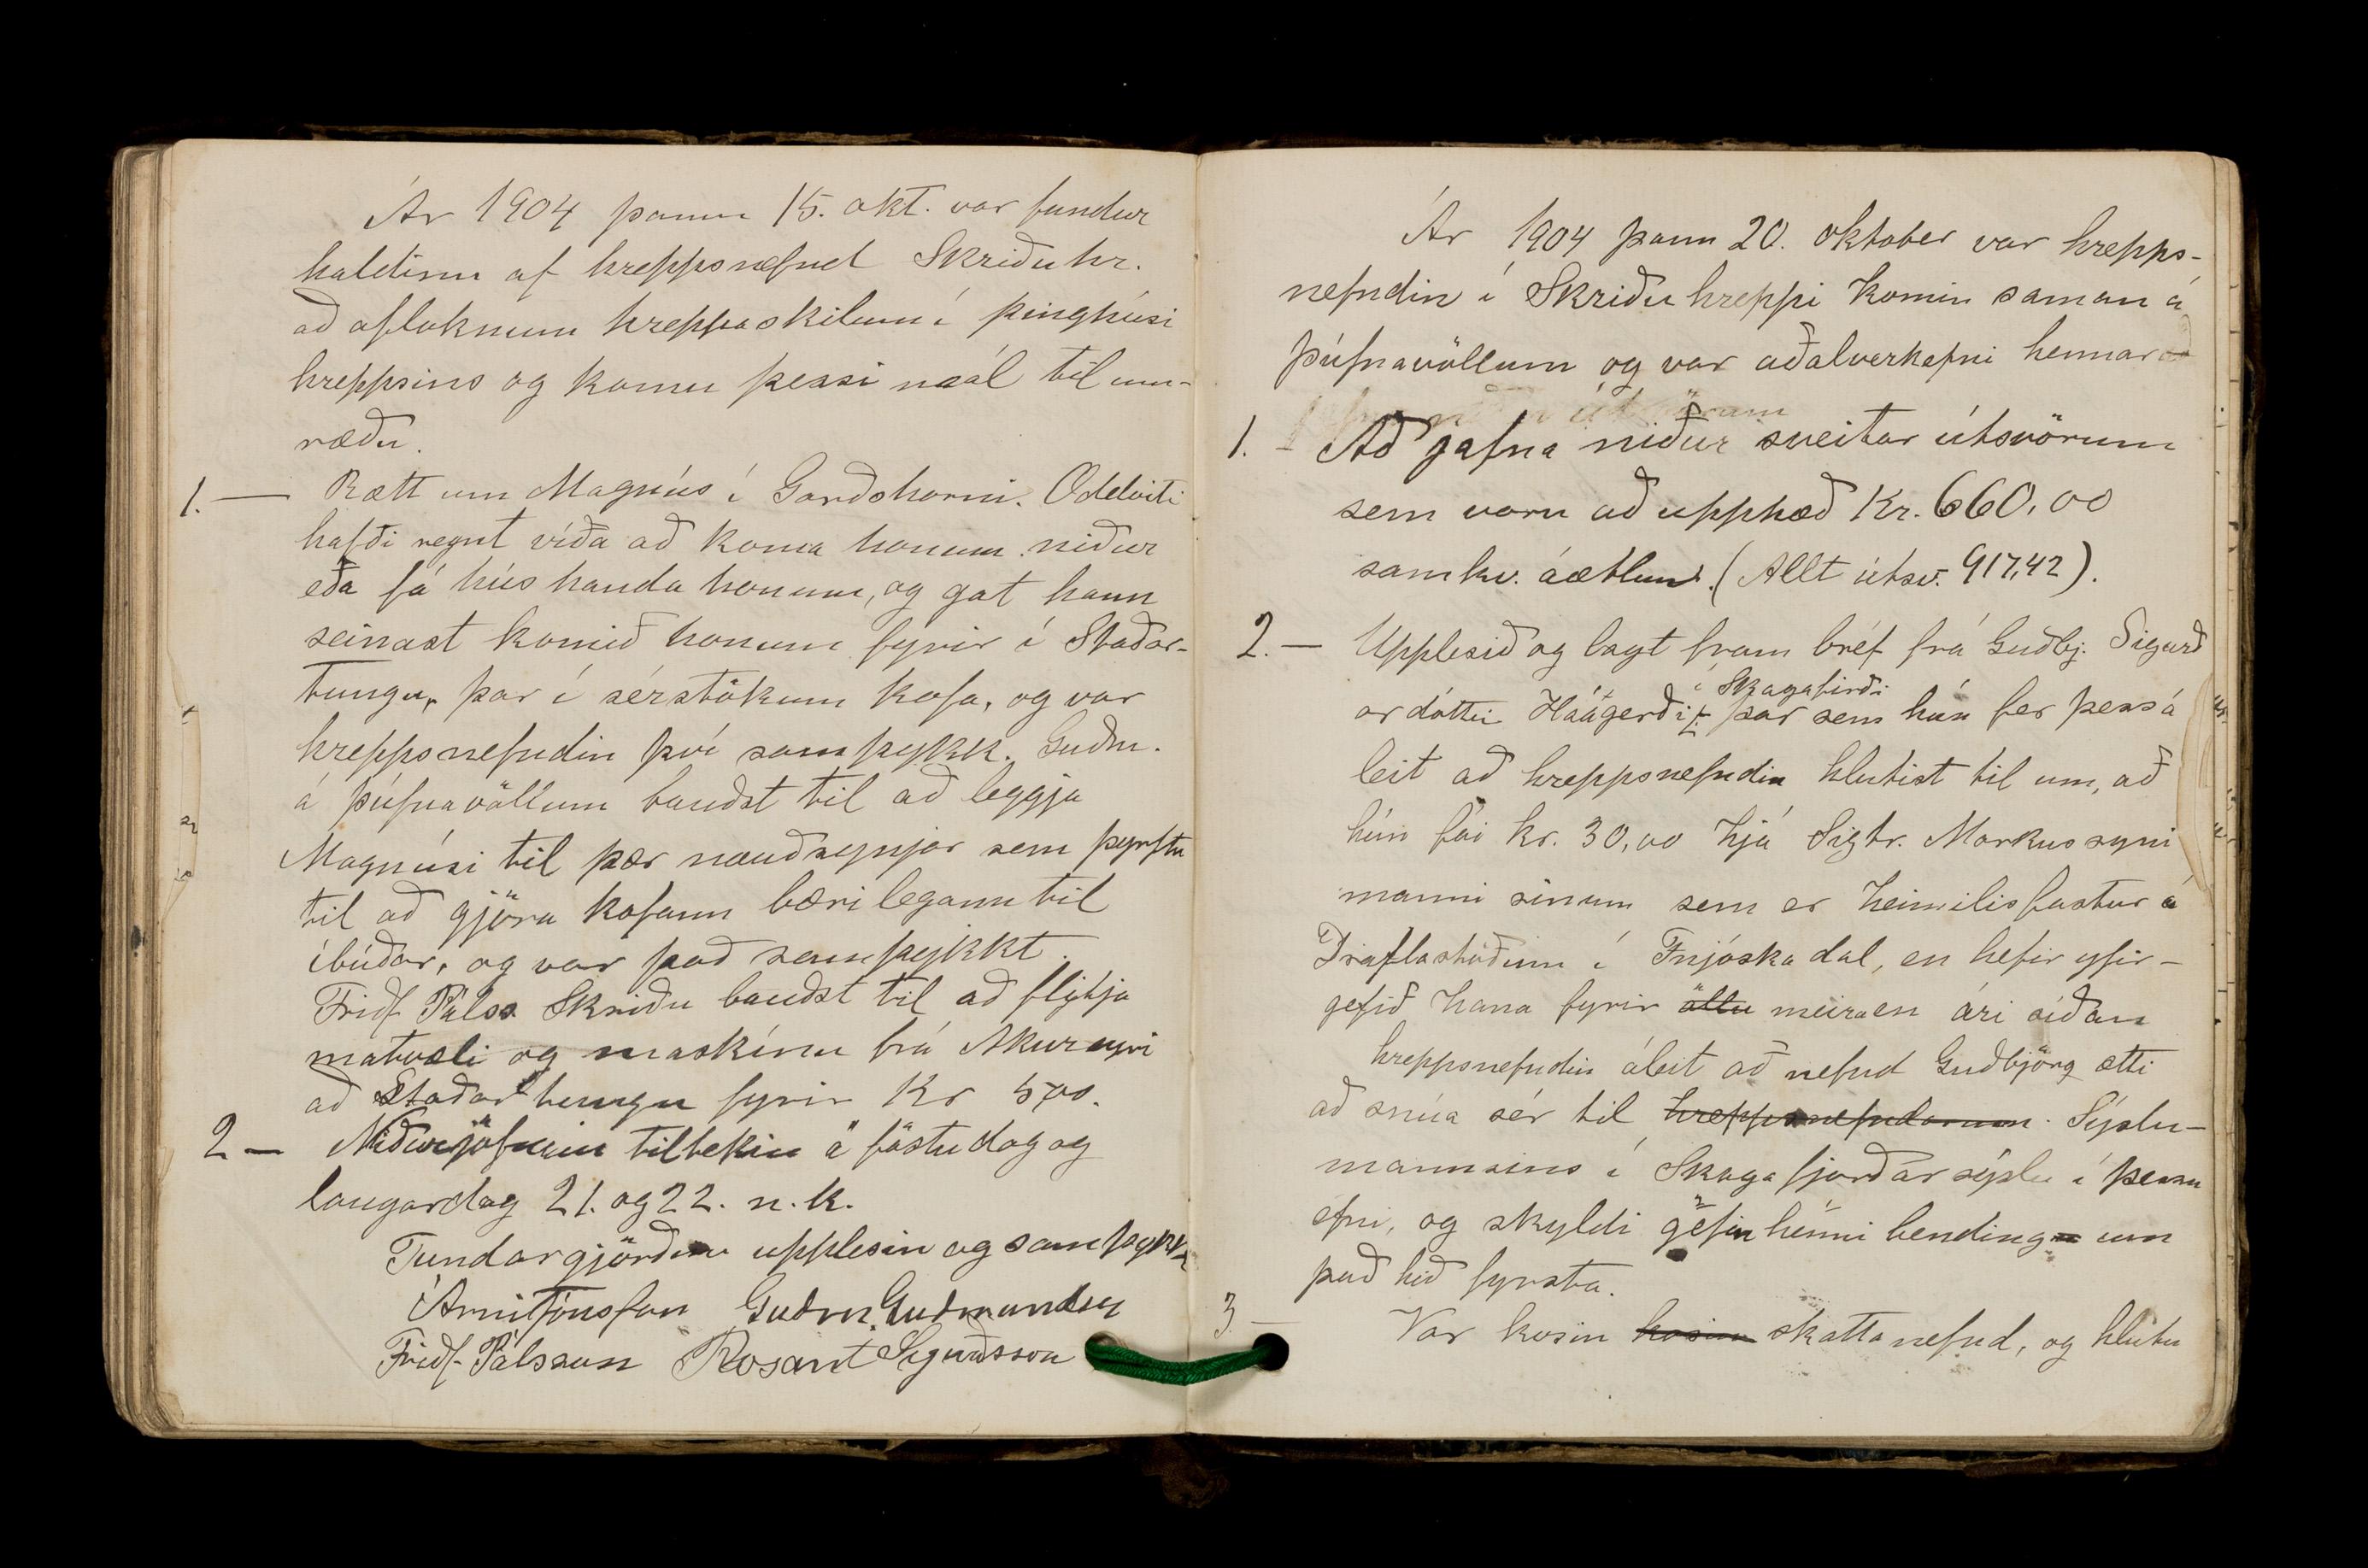 Ár 1904 þann 15. okt. var fundur
haldinn af hreppsnefnd Skriðuhr.
að afloknum hreppaskilum í þinghúsi
hreppsins og komu þessi mál til um-
ræðu.
1. — Rætt um Magnús í Garðshorni. Oddviti
hafði reynt víða að koma honum niður
eða fá hús handa honum, og gat hann
seinast komið honum fyrir í Staðar-
tungu, þar í sérstökum kofa, og var
hreppsnefndin því samþykk. Guðm.
á Þúfnavöllum bauðst til að leggja
Magnúsi til þær nauðsynjar sem þyrftu
til að gjöra kofann bærilegann til
íbúðar, og var það samþykkt.
Friðf. Pálss. Skriðu bauðst til að flytja
matvæli og maskínu frá Akureyri
að Staðartungu fyrir Kr 5,00.
2 — Niðurjöfnunin tiltekin á föstudag og
laugardag 21. og 22. n.k.
Fundargjörðin upplesin og samþykkt
Árni Jónsson Guðm. Guðmundss
Friðf. Pálsson Rósant Sigurðsson
Ár 1904 þann 20. oktober var hrepps-
nefndin í Skriðuhreppi komin saman á
Þúfnavöllum og var aðalverkefni hennar
1. - Að jafna niður sveitar útsvörum
sem voru að upphæð Kr. 660,00
samkv. áætlun. (Allt útsv. 917,42).
2. — Upplesið og lagt fram bréf frá Guðbj. Sigurð
ardóttir Háagerði í Skagafirði þar sem hún fer þess á
leit að hreppsnefndin hlutist til um, að
hún fái kr. 30,00 hjá Sigtr. Markussyni
manni sínum sem er heimilisfastur á
Draflastöðum í Fnjóskadal, en hefir yfir-
gefið hana fyrir öllu meira en ári síðan
hreppsnefndin áleit að nefnd Guðbjörg ætti
að snúa sér til hreppsnefndarinnar Sýslu-
mannsins í Skagafjarðarsýslu í þessu
efni, og skyldi gefin henni bending um
það hið fyrsta.
3. — Var kosin kosin skattanefnd, og hlutu